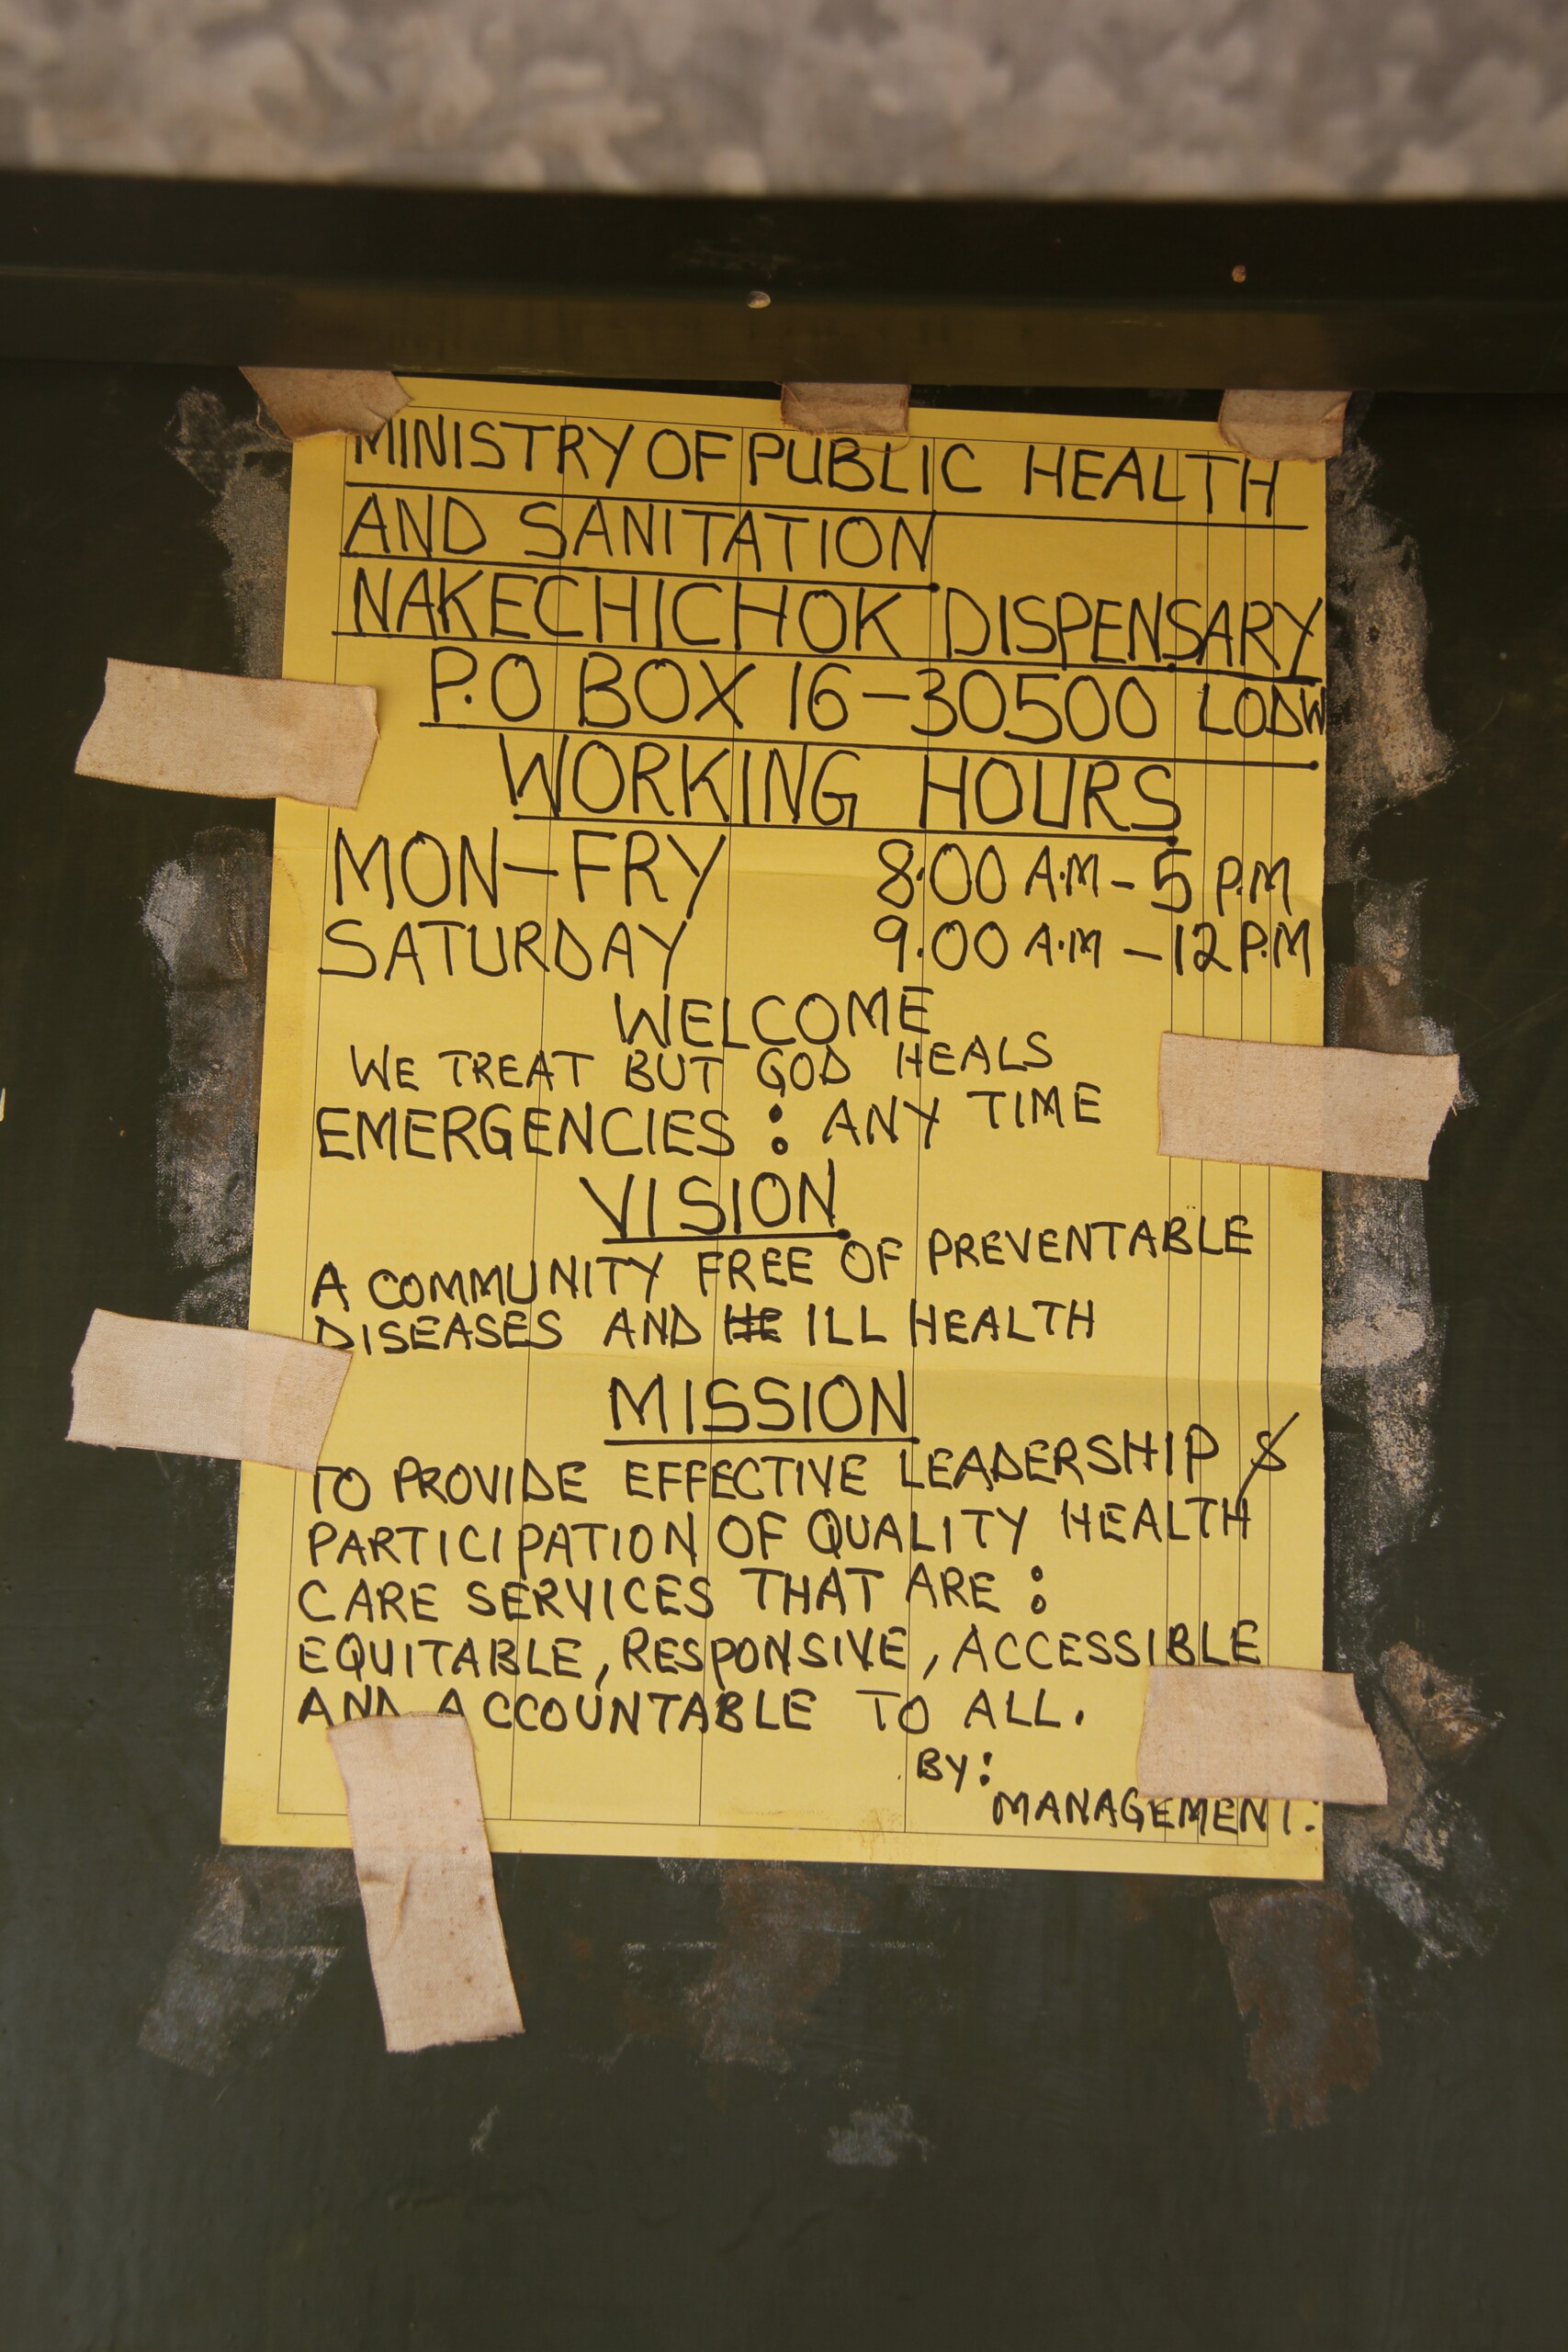 MINISTRY OF PUBLIC HEALTH
AND SANITATION
NAKECHICHOK DISPENSARY
P.O BOX 16-30500 LODW
WORKING HOURS
MON-FRY 8.00 A.M - 5 P.M
SATURDAY 9.00 A.M - 12 P.M
WELCOME
WE TREAT BUT GOD HEALS
EMERGENCIES : ANY TIME
VISION
A COMMUNITY FREE OF PREVENTABLE
DISEASES AND ILL HEALTH
MISSION
TO PROVIDE EFFECTIVE LEADERSHIP &
PARTICIPATION OF QUALITY HEALTH
CARE SERVICES THAT ARE :
EQUITABLE, RESPONSIVE, ACCESSIBLE
AND ACCOUNTABLE TO ALL.
BY:
MANAGEMENT.